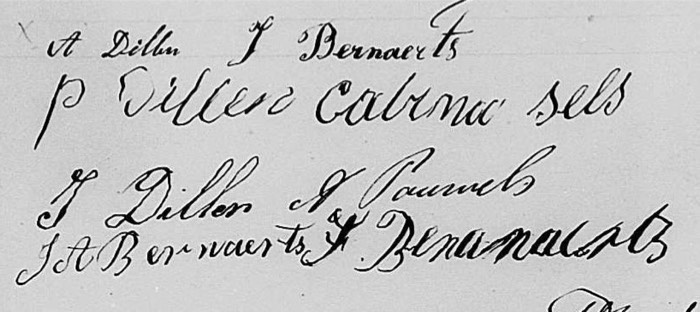 A Dillen J Bernaerts
P Dillen Cabina Sels
J Dillen A Pauwels
J A Bernaerts F Benanaerts